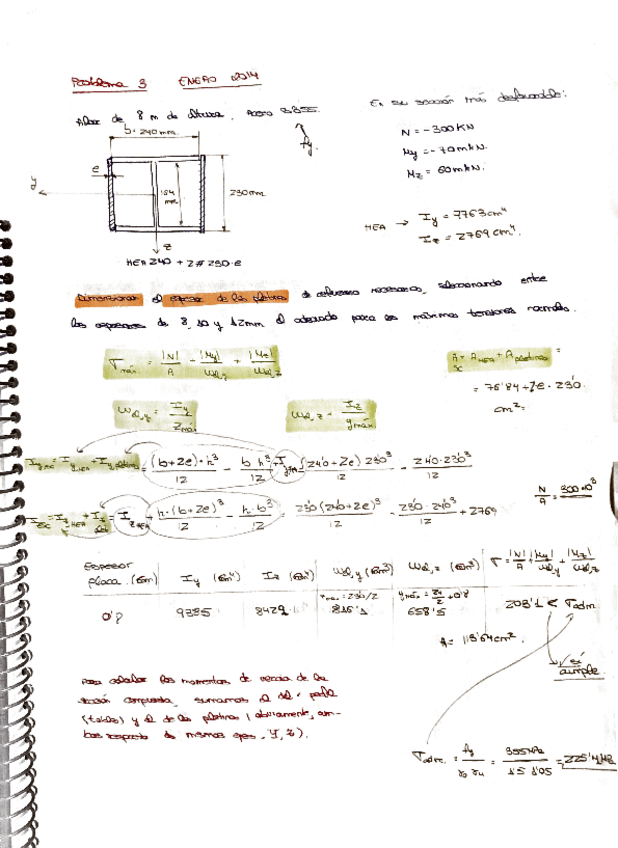 Problema 3 ENERO 2014
Pilar de 8 m de altura. Acero S355.
fy.
En su sección más desfavorable:
N = -300 KN
My = -70 mkN.
Mz = 60 mkN.
HEA → Iy = 7763 cm⁴
Iz = 2769 cm⁴.
b = 240 mm.
e
y
164 mm
230 mm
z
HEA 240 + 2# 230·e
Dimensionar el espesor de las pletinas de refuerzo necesarias, seleccionando entre
los espesores de 8, 10 y 12mm el adecuado para las máximas tensiones normales.
σmáx = |N|/A + |My|/Wel,y + |Mz|/Wel,z
A sc = A HEA + A pletinas =
= 76'84 + 2e · 23'0
cm².
Wel,y = Iy/Zmáx
Wel,z = Iz/ymáx
Iy,sc = Iy HEA + Iy,pletina = (b+2e)·h³/12 - b h³/12 + Iy HEA = (24'0+2e) 23'0³/12 - 24'0·23'0³/12
Iz,sc = Iz HEA + Iz plat = Iz HEA + h·(b+2e)³/12 - h·b³/12 = 23'0(24'0+2e)³/12 - 23'0·24'0³/12 + 2769
N/A = 300·10³
Espesor placa (cm) Iy (cm⁴) Iz (cm⁴) Wel,y (cm³) Wel,z (cm³) σ = |N|/A + |My|/Wel,y + |Mz|/Wel,z
zmáx = 230/2 ymáx = 24/2 + 0'8
0'8 9385 8429 816'1 658'5 203'1 < σadm.
A = 113'64 cm².
✓ sí
cumple.
Para calcular los momentos de inercia de la
sección compuesta, sumamos el del perfil
(tablas) y el de las pletinas (obviamente, am-
bos respecto de mismos ejes, Y, Z).
σadm. = fy/γs γM = 355 MPa/1'5 1'05 = 225'4 MPa